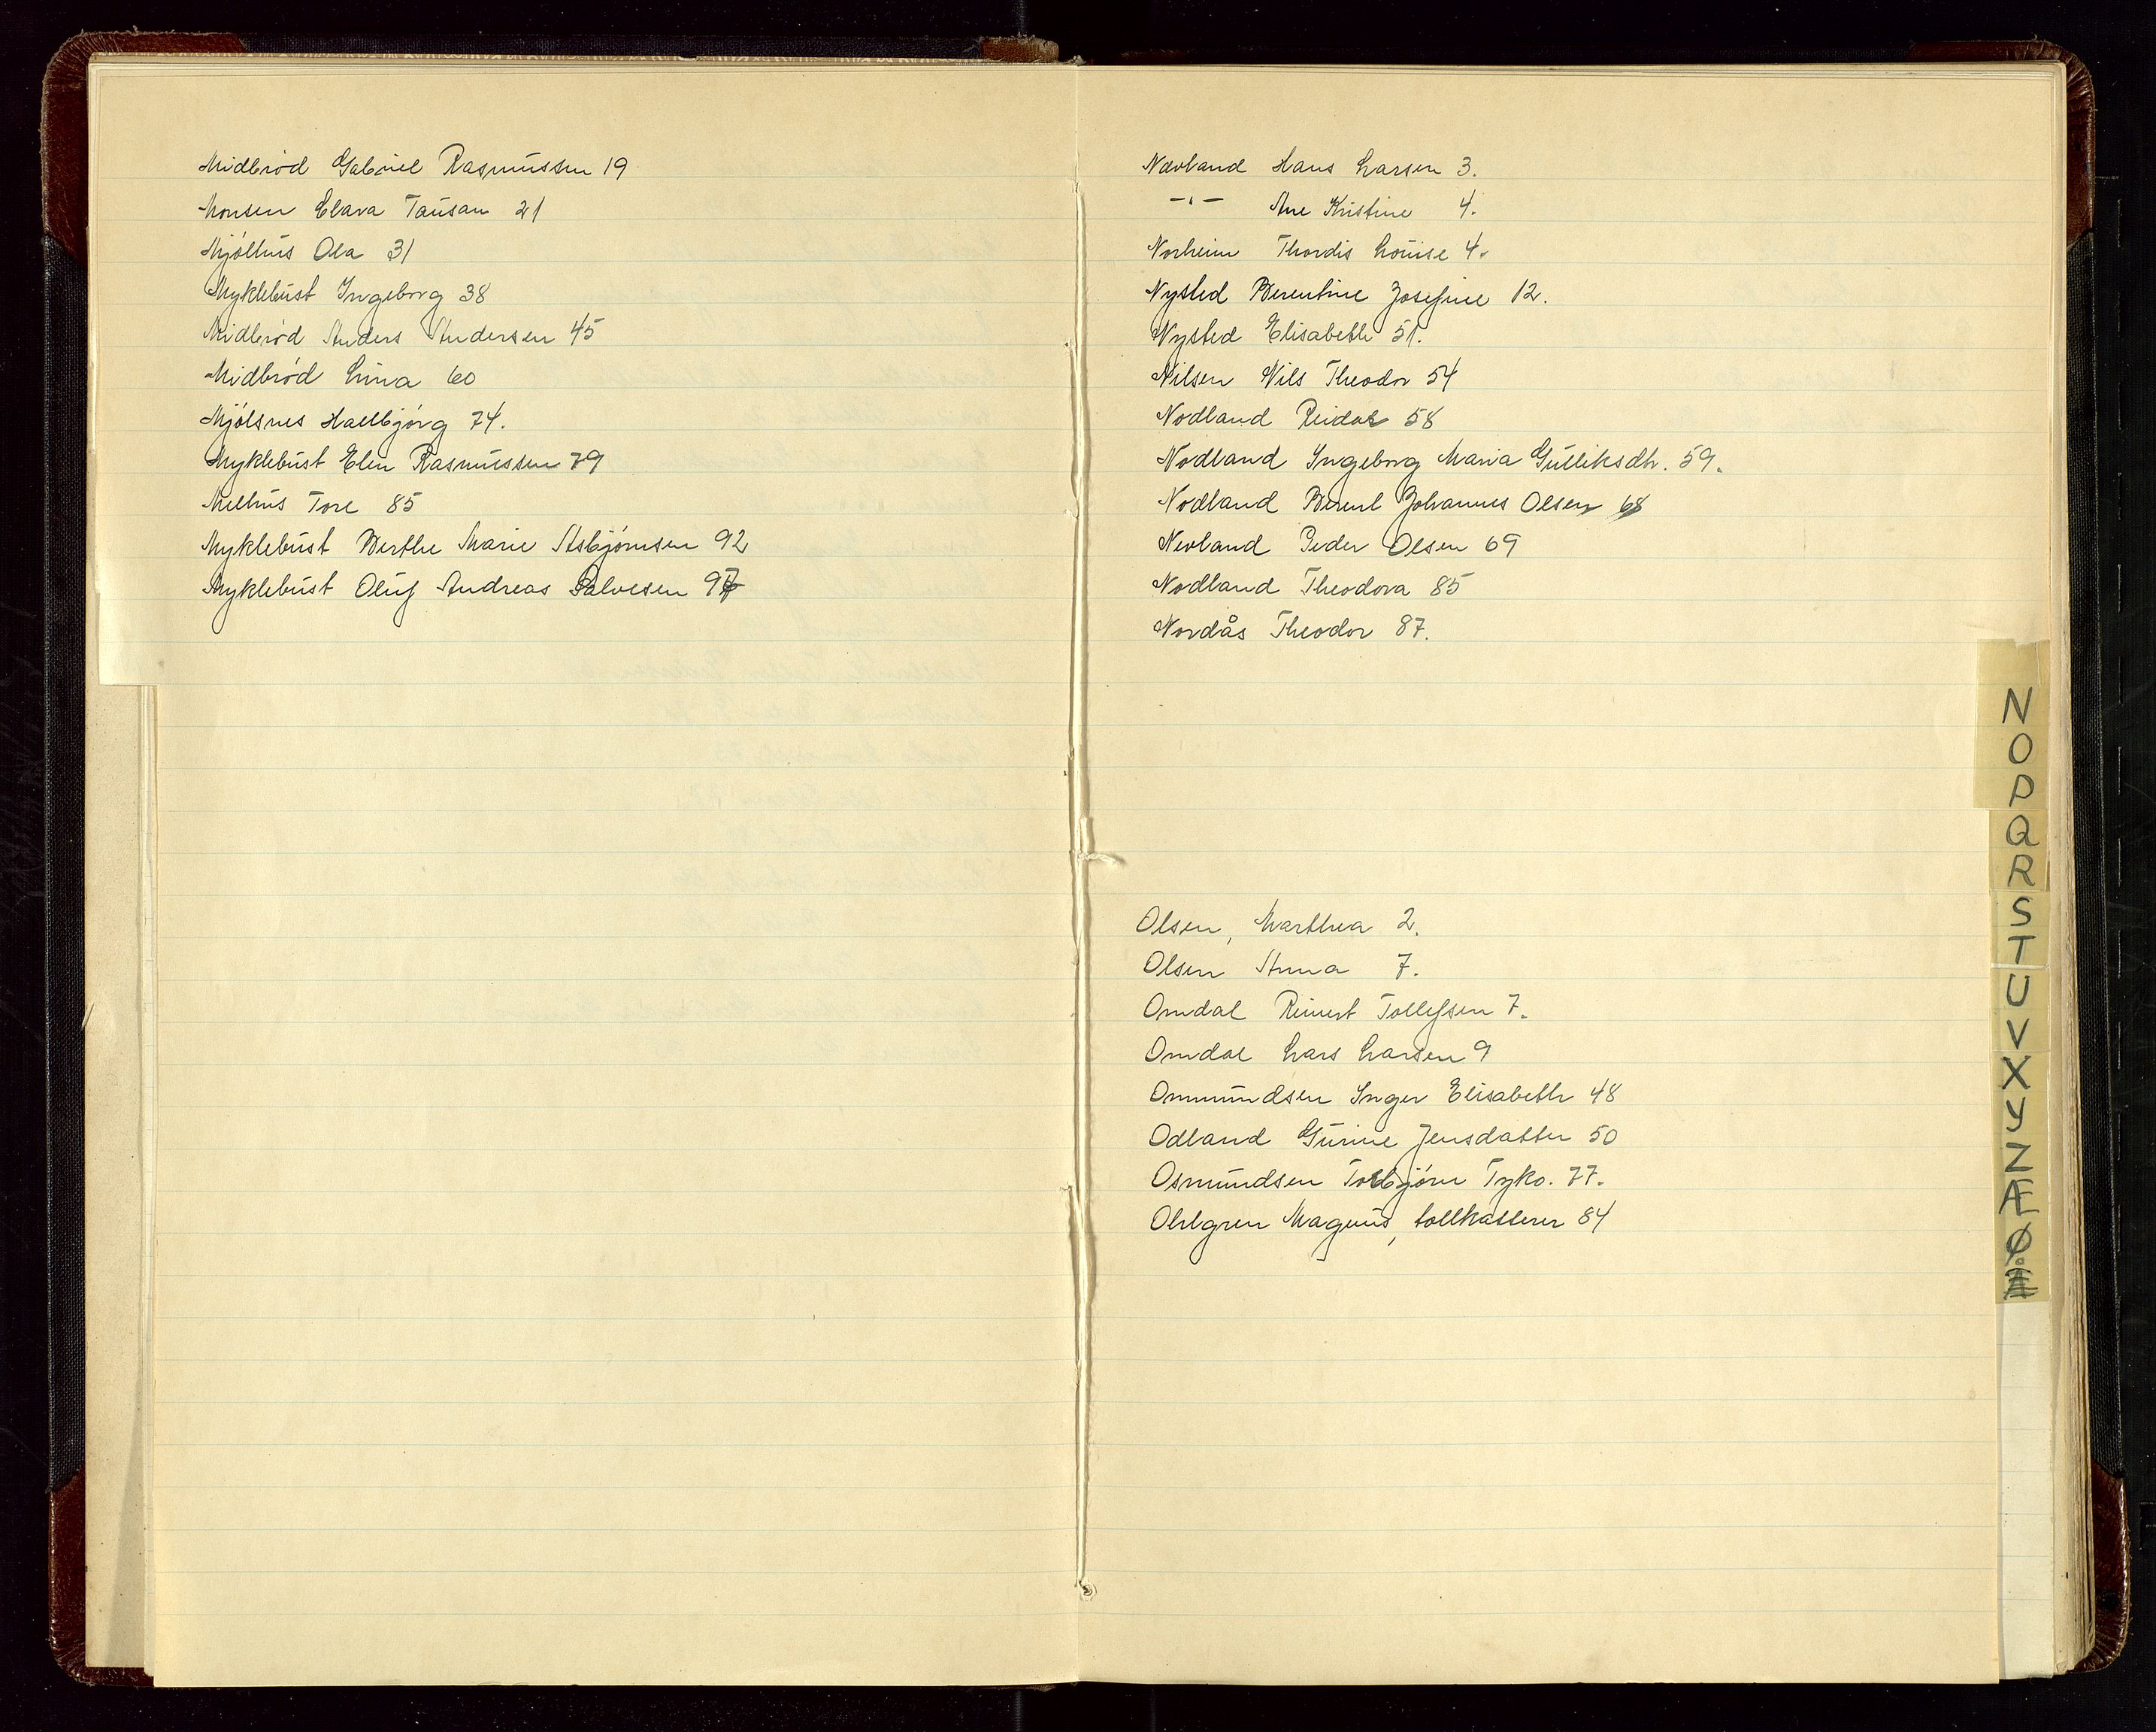 Midbrød Gabriel Rasmussen 19
Monsen Clara Tausan 21
Mjølhus Ola 31
Myklebust Ingeborg 38
Midbrød Anders Andersen 45
Midbrød Lina 60
Mjølsnes Hallbjørg 74.
Myklebust Elen Rasmussen 79
Melhus Tore 85
Myklebust Berthe Marie Asbjørnsen 92
Myklebust Oluf Andreas Salvesen 97
Nævland Hans Larsen 3.
-"- Ane Kristine 4.
Norheim Thordis Louise 4.
Nysted Berentine Josefine 12.
Nysted Elisabeth 51.
Nilsen Nils Theodor 54
Nodland Reidar 58
Nodland Ingeborg Maria Gulliksdtr. 59.
Nodland Berent Johannes Olsen 68
Nevland Peder Olsen 69
Nodland Theodora 85
Nordås Theodor 87.
Olsen, Marthea 2.
Olsen Anna 7.
Omdal Reinert Tollefsen 7.
Omdal Lars Larsen 9
Ommundsen Inger Elisabeth 48
Odland Gurine Jensdatter 50
Osmundsen Torbjørn Tyko. 77.
Ohlgren Magnus, tollkasserer 84
N
O
P
Q
R
S
T
U
V
X
Y
Z
Æ
Ø.